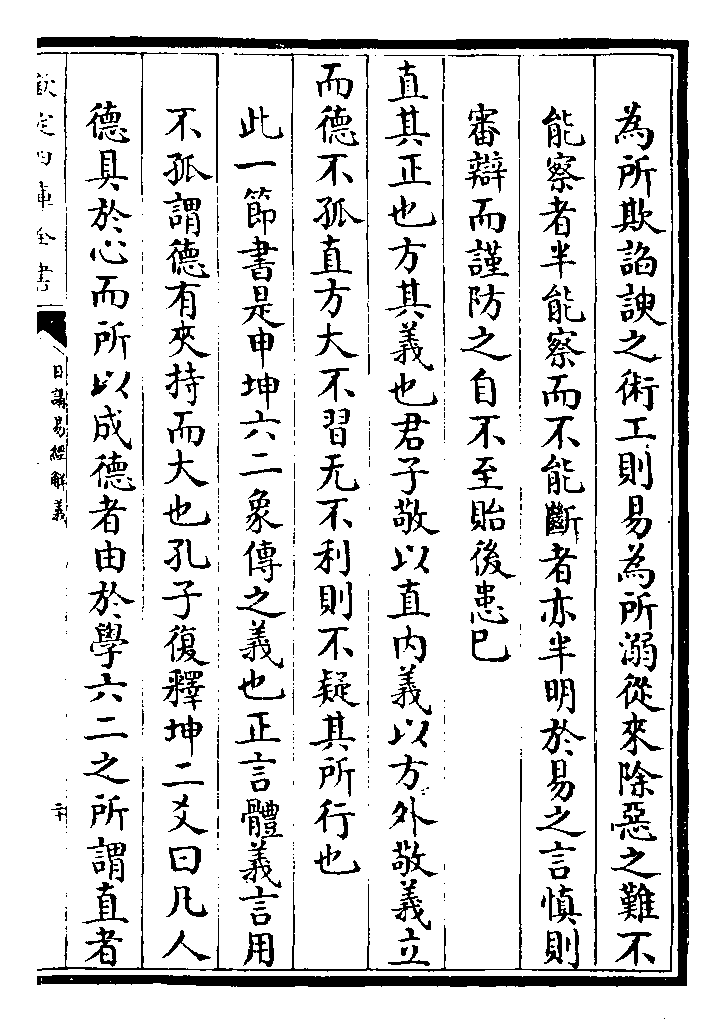 為所欺諂諛之術工則易為所溺從來除惡之難不
能察者半能察而不能斷者亦半明於易之言慎則
審辯而謹防之自不至貽後患巳
直其正也方其義也君子敬以直內義以方外敬義立
而德不孤直方大不習无不利則不疑其所行也
此一節書是申坤六二象傳之義也正言體義言用
不孤謂德有夾持而大也孔子復釋坤二爻曰凡人
德具於心而所以成德者由於學六二之所謂直者
欽定四庫全書
日講易經解義